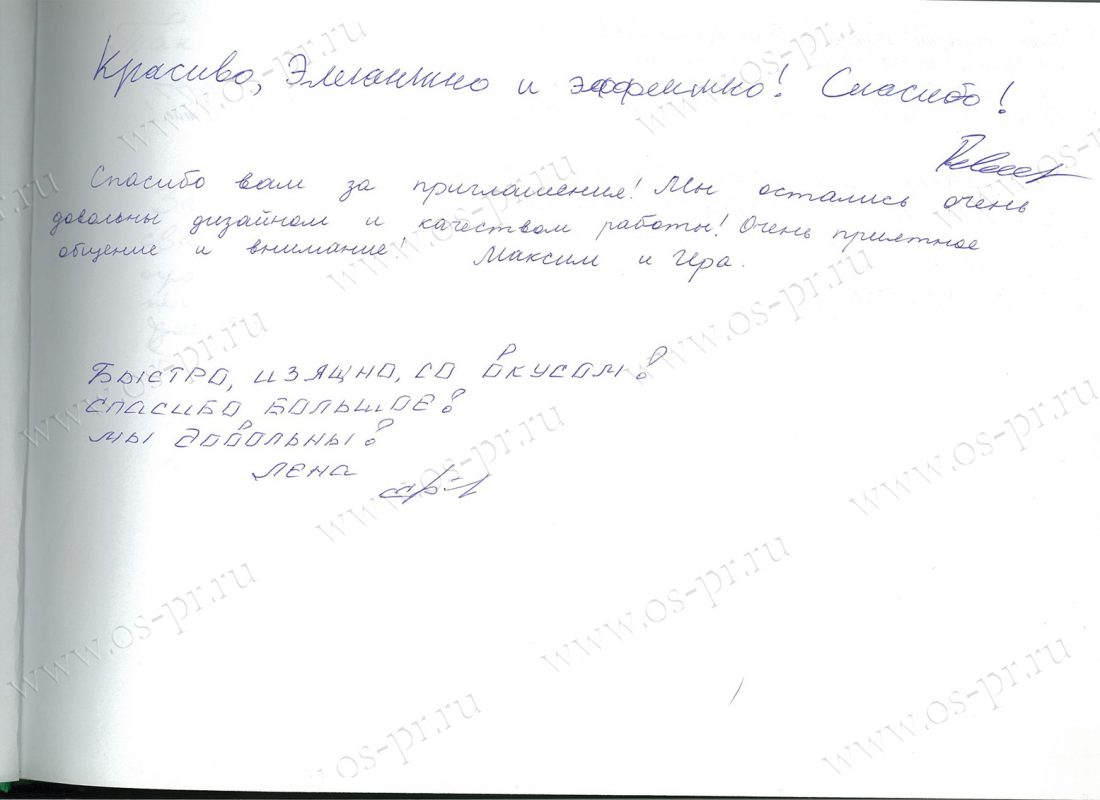 Красиво, Элегантно и эффектно! Спасибо!
Спасибо вам за приглашение! Мы остались очень
довольны дизайном и качеством работы! Очень приятное
общение и внимание! Максим и Ира.
БЫСТРО, ИЗЯЩНО, СО ВКУСОМ!
СПАСИБО БОЛЬШОЕ!
МЫ ДОВОЛЬНЫ!
ЛЕНА
www.os-pr.ru